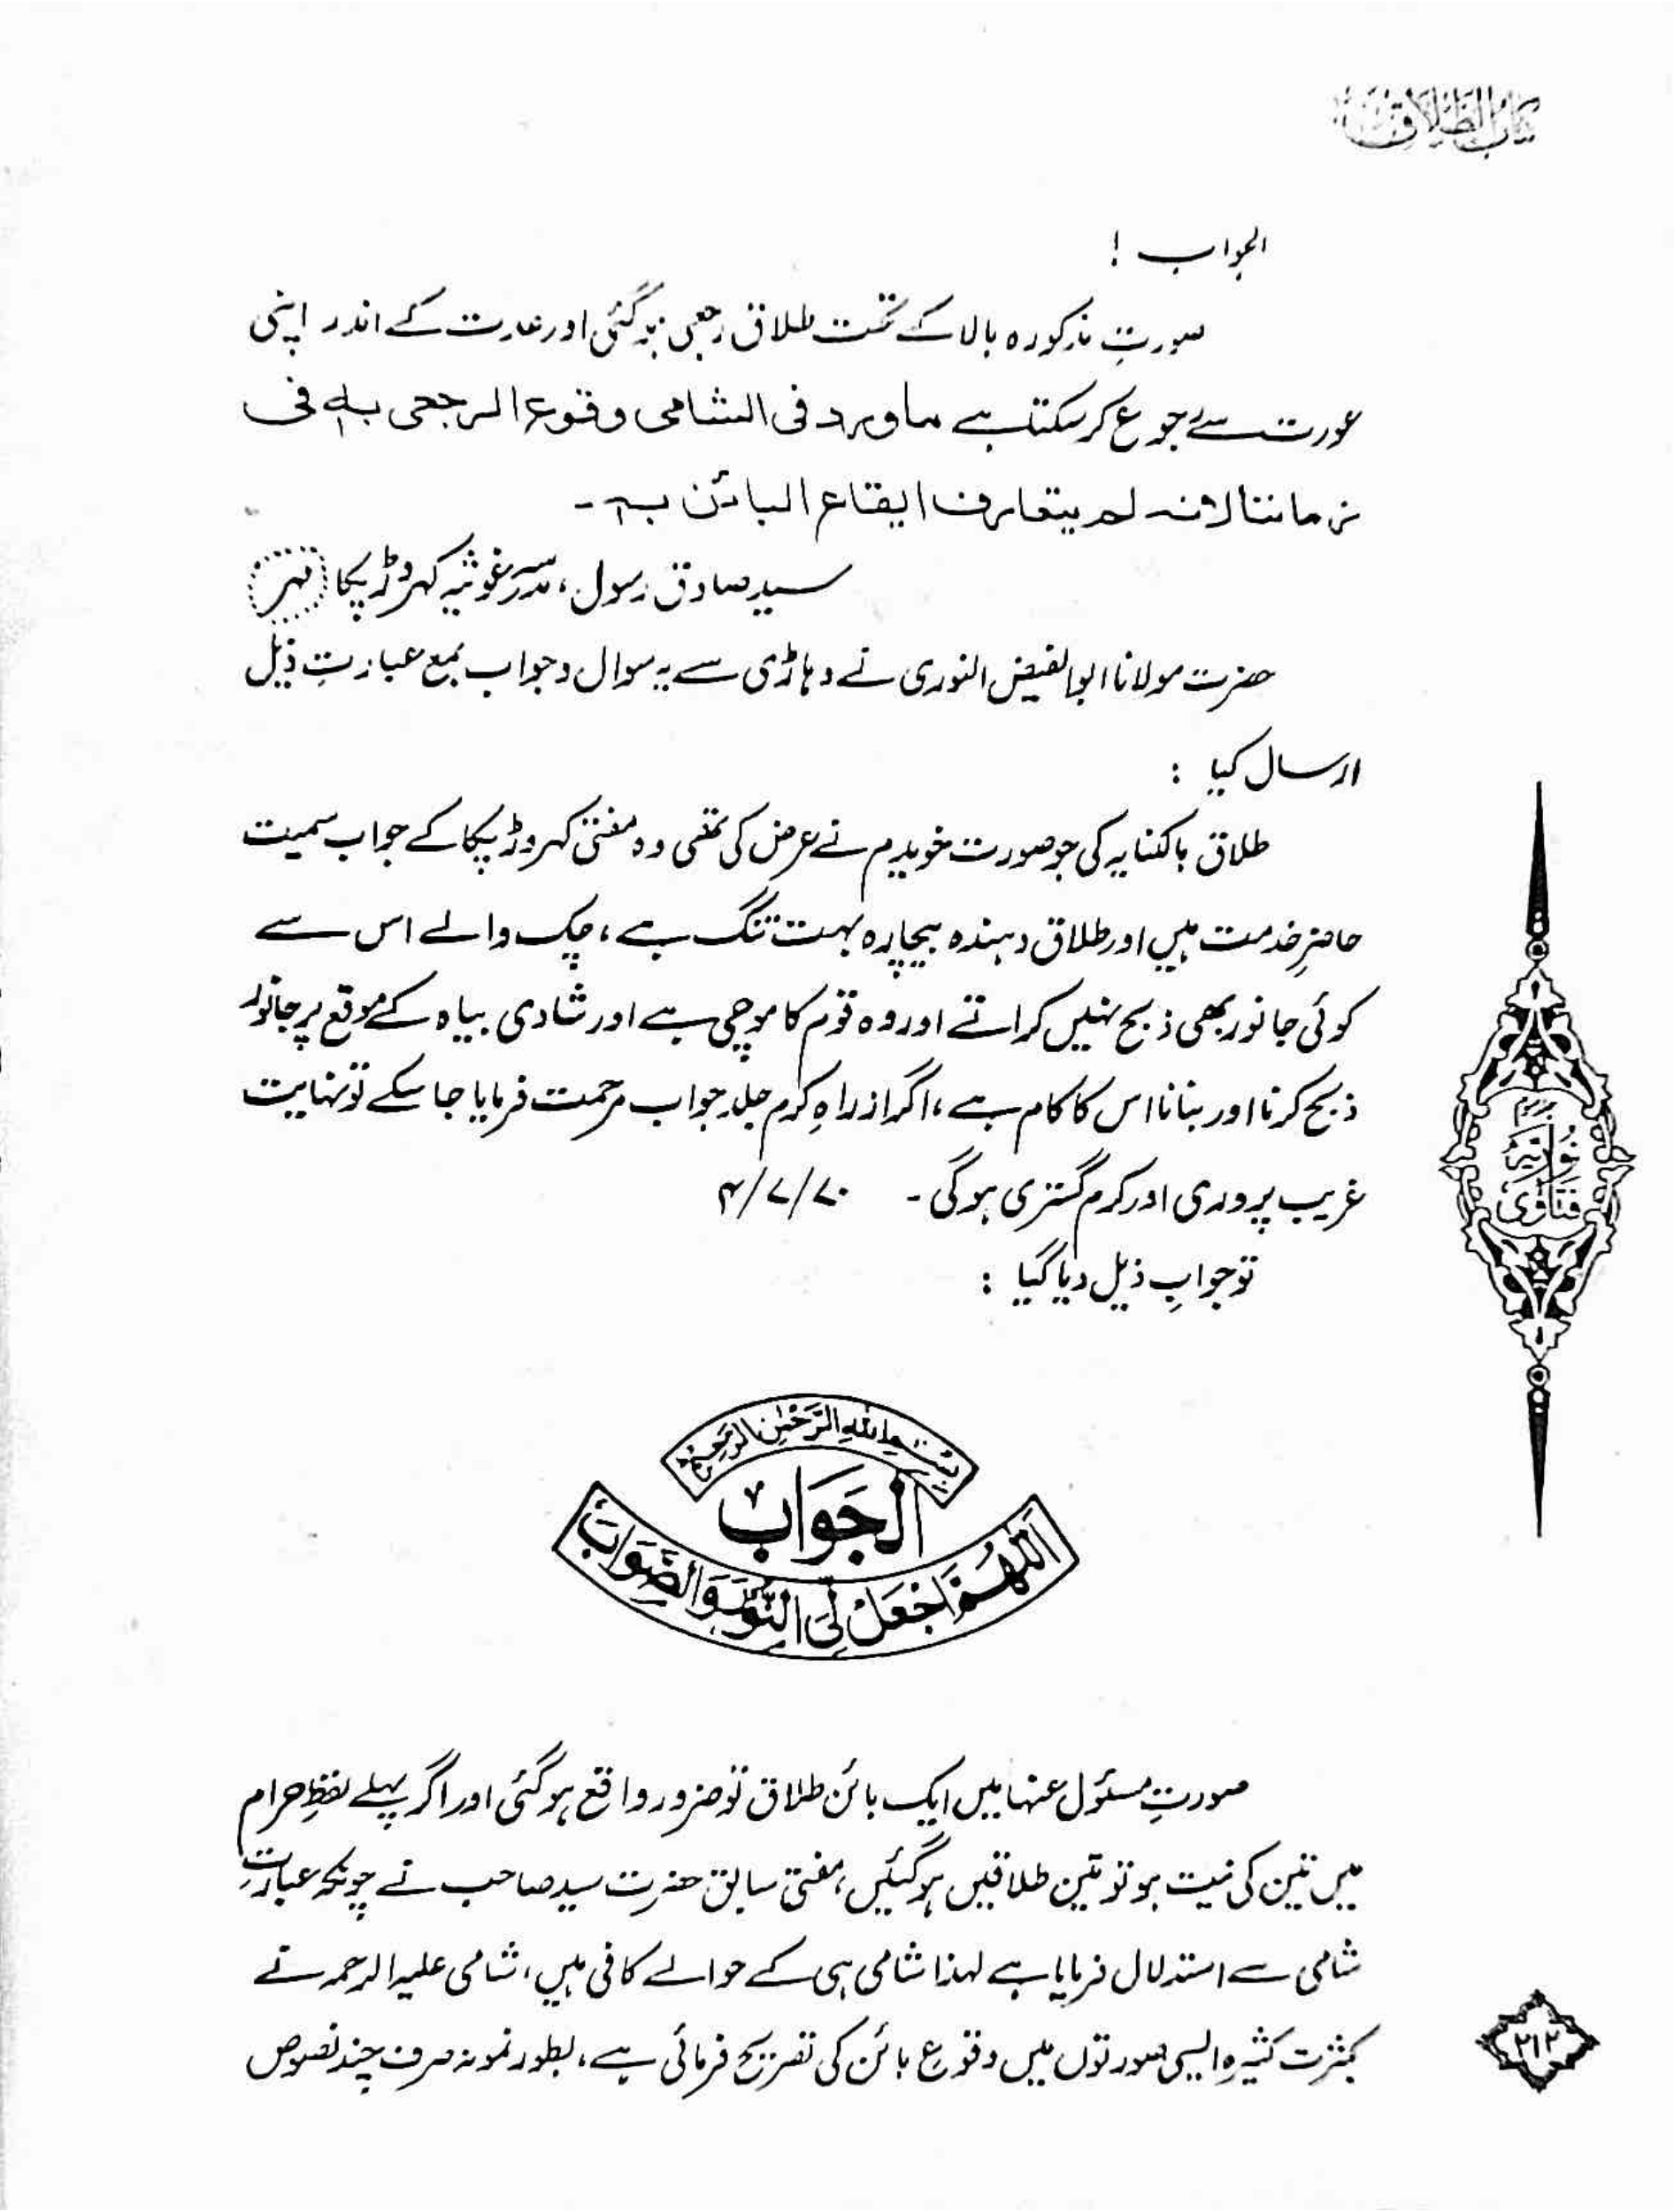 کتاب الطلاق
الجواب !
صورتِ مذکورہ بالا کے تحت طلاق رجعی ہو گئی اور عدت کے اندر اپنی
عورت سے رجوع کر سکتا ہے ماورد فی الشامی وقوع الرجعی بہ فی
زماننا لانہ لم یتعارف ایقاع البائن بہ۔
سید صادق رسول، مدرسہ غوثیہ کہروڑ پکا (مہر)
حضرت مولانا ابوالفیض النوری نے وہاڑی سے یہ سوال و جواب بمع عبارتِ ذیل
ارسال کیا :
طلاق بالکنایہ کی جو صورت خویدم نے عرض کی تھی وہ مفتی کہروڑ پکا کے جواب سمیت
حاضرِ خدمت ہیں اور طلاق دہندہ بیچارہ بہت تنگ ہے، چک والے اس سے
کوئی جانور بھی ذبح نہیں کراتے اور وہ قوم کا موچی ہے اور شادی بیاہ کے موقع پر جانور
ذبح کرنا اور بنانا اس کا کام ہے، اگر از راہِ کرم جلد جواب مرحمت فرمایا جا سکے تو نہایت
غریب پروری اور کرم گستری ہو گی۔ ۴/۷/۷۰
تو جوابِ ذیل دیا گیا :
نوریہ
فتاویٰ
بسم اللہ الرحمٰن الرحیم
الجواب
اللھم اجعل لی النور والصواب
صورتِ مسئول عنہا میں ایک بائن طلاق تو ضرور واقع ہو گئی اور اگر پہلے لفظِ حرام
میں تین کی نیت ہو تو تین طلاقیں ہو گئیں، مفتی سابق حضرت سید صاحب نے چونکہ عبارتِ
شامی سے استدلال فرمایا ہے لہذا شامی ہی کے حوالے کافی ہیں، شامی علیہ الرحمہ نے
بکثرت کثیرہ ایسی صورتوں میں وقوع بائن کی تصریح فرمائی ہے، بطور نمونہ صرف چند نصوص
۲۱۲